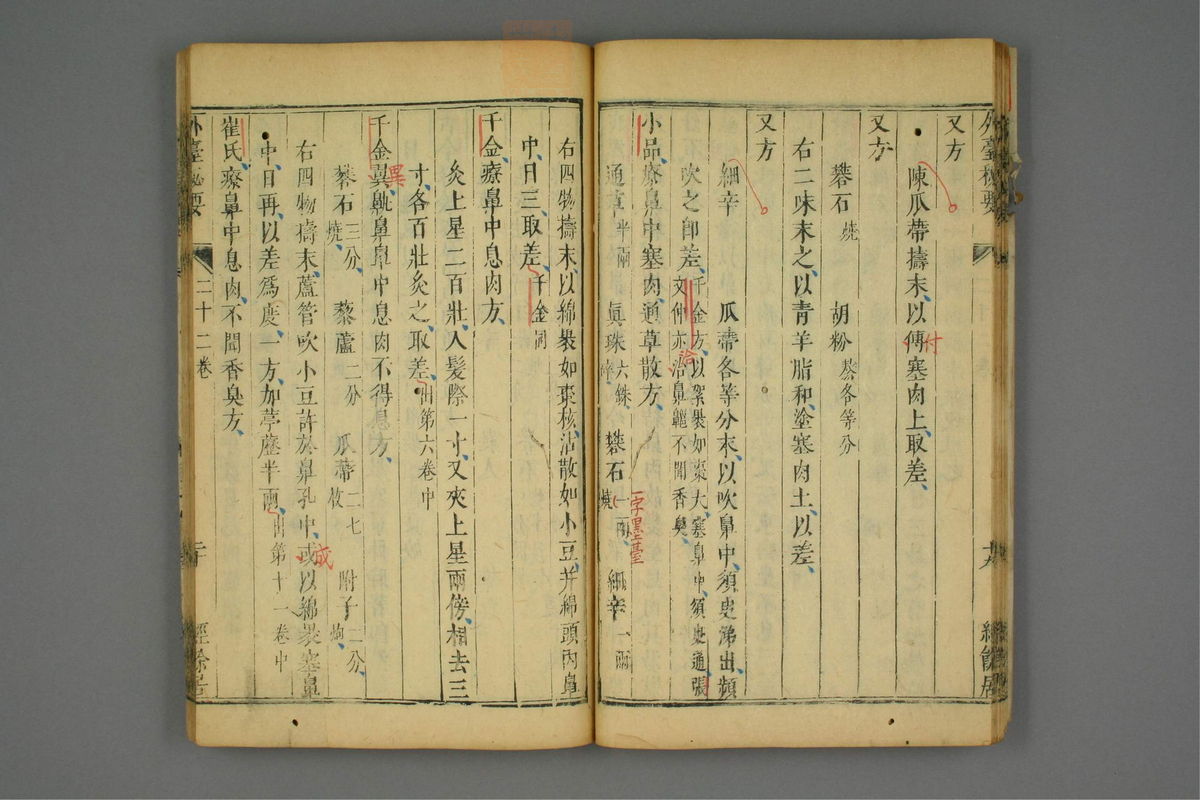 外臺秘要
十九
經餘居
又方
陳瓜蔕擣末以傳塞肉上取差
付
又方
礬石燒 胡粉熬各等分
右二味末之以青羊脂和塗塞肉上以差
又方
細辛 瓜蔕各等分末以吹鼻中須臾涕出頻
吹之卽差千金方以絮裝如棗大塞鼻中須臾通張
文仲亦治鼻齆不聞香臭
治
小品療鼻中塞肉通草散方
通草半兩 眞珠六銖碎 礬石一兩燒 細辛一兩
一字墨臺
右四物擣末以綿裝如棗核沾散如小豆并綿頭內鼻
中日三取差千金同
千金療鼻中息肉方
灸上星二百壯入髮際一寸又夾上星兩傍相去三
寸各百壯灸之取差出第六卷中
千金翼鼽鼻鼻中息肉不得息方
異
礬石三分燒 藜蘆二分 瓜蔕二七枚 附子二分炮
右四物擣末蘆管吹小豆許於鼻孔中或以綿裹塞鼻
成
中日再以差爲度一方加葶藶半兩出第十一卷中
崔氏療鼻中息肉不聞香臭方
外臺秘要
二十二卷
二十
經餘居